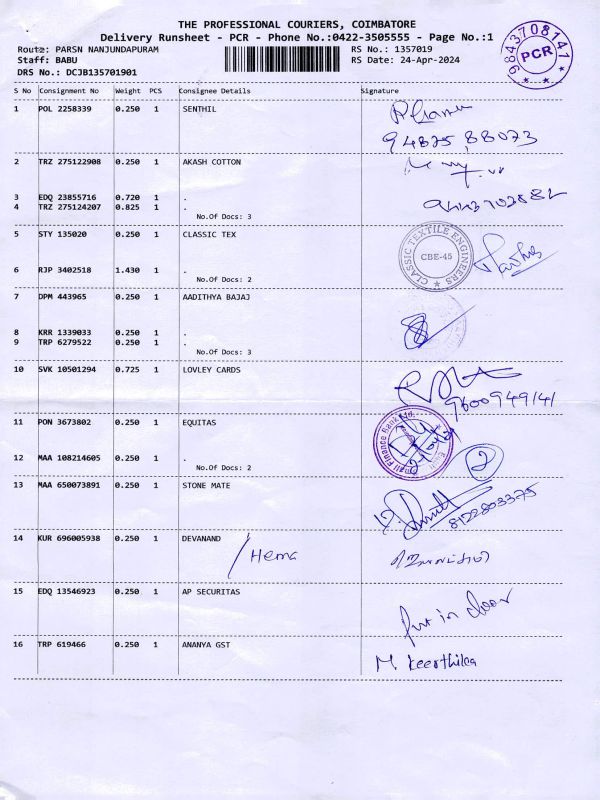 THE PROFESSIONAL COURIERS, COIMBATORE
Delivery Runsheet - PCR - Phone No.:0422-3505555 - Page No.:1
Route: PARSN NANJUNDAPURAM RS No.: 1357019
Staff: BABU RS Date: 24-Apr-2024
DRS No.: DCJB135701901
9843708141
PCR
S No Consignment No Weight PCS Consignee Details Signature
1 POL 2258339 0.250 1 SENTHIL
94875 88073
2 TRZ 275122908 0.250 1 AKASH COTTON
3 EDQ 23855716 0.720 1 .
4 TRZ 275124207 0.825 1 .
No.Of Docs: 3
5 STY 135020 0.250 1 CLASSIC TEX
CLASSIC TEXTILE ENGINEERS
CBE-45
6 RJP 3402518 1.430 1 .
No.Of Docs: 2
7 DPM 443965 0.250 1 AADITHYA BAJAJ
8 KRR 1339033 0.250 1 .
9 TRP 6279522 0.250 1 .
No.Of Docs: 3
10 SVK 10501294 0.725 1 LOVLEY CARDS
9600949141
11 PON 3673802 0.250 1 EQUITAS
12 MAA 108214605 0.250 1 .
No.Of Docs: 2
2
13 MAA 650073891 0.250 1 STONE MATE
8122803375
14 KUR 696005938 0.250 1 DEVANAND
/Hema
15 EDQ 13546923 0.250 1 AP SECURITAS
Put in door
16 TRP 619466 0.250 1 ANANYA GST
M. Keerthika